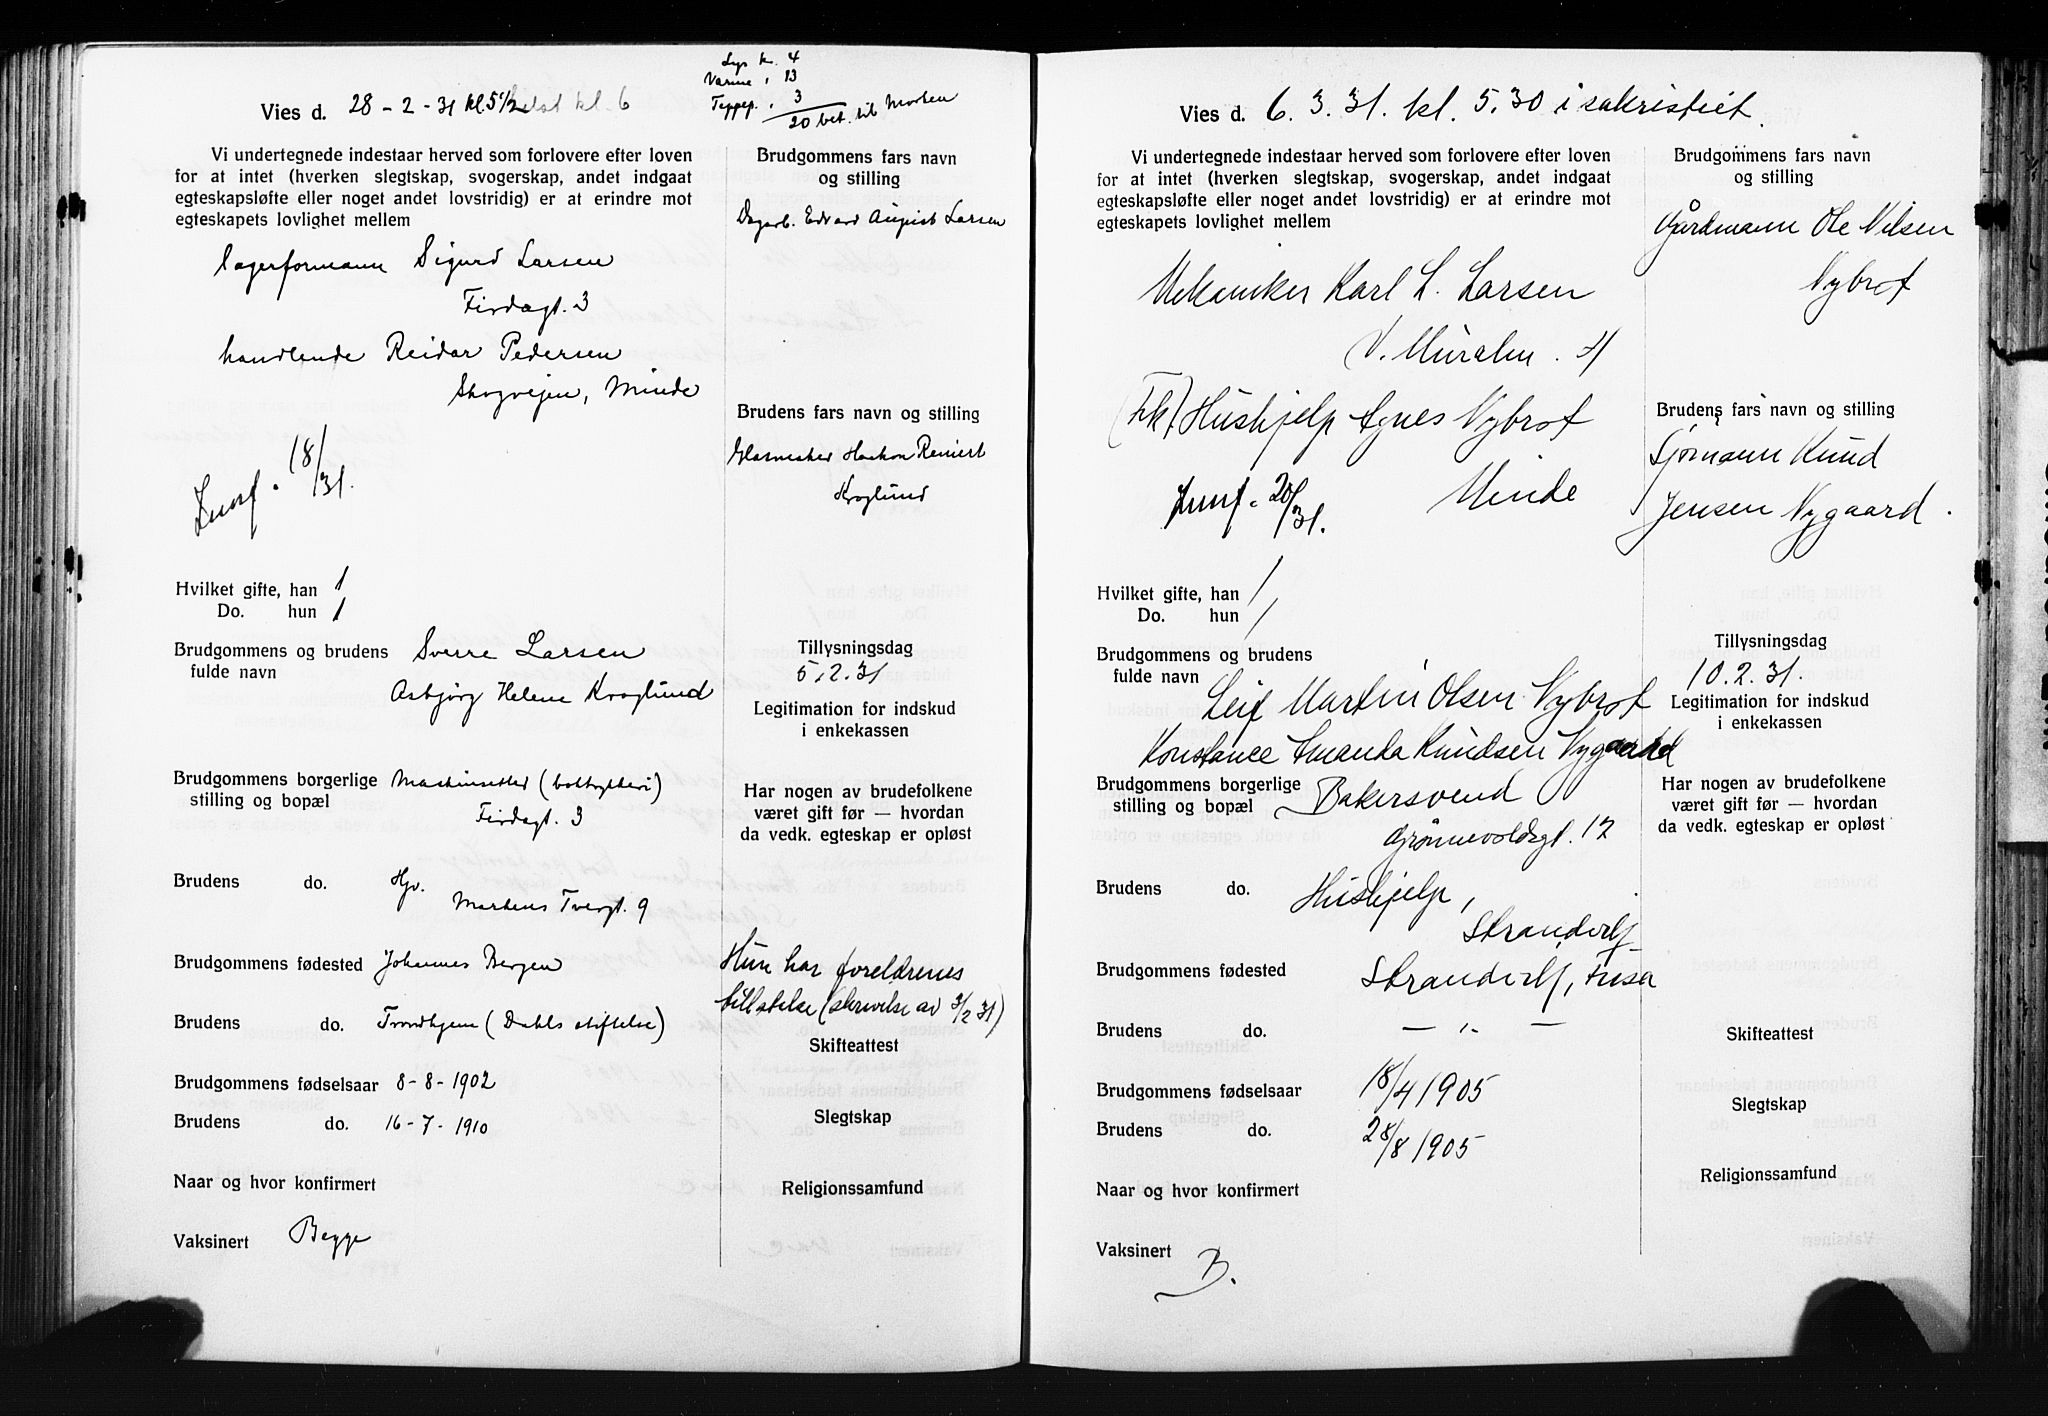 Vies d. 28 - 2 - 31 kl 5 1/2 helst kl. 6
Lys kr. 4
Varme " 13
Teppep. " 3
20 bet. til Morten
Vi undertegnede indestaar herved som forlovere efter loven
for at intet (hverken slegtskap, svogerskap, andet indgaat
egteskapsløfte eller noget andet lovstridig) er at erindre mot
egteskapets lovlighet mellem
lagerformann Sigurd Larsen
Firdagt. 3
handlende Reidar Pedersen
Skogvejen, Minde
18/31.
Hvilket gifte, han 1
Do. hun 1
Brudgommens og brudens Sverre Larsen
fulde navn
Asbjørg Helene Kroglund
Brudgommens borgerlige Maskinsetter (boktrykkeri)
stilling og bopæl Firdagt. 3
Brudens do. Hjv.
Martens Tvergt. 9
Brudgommens fødested Johannes Bergen
Brudens do. Trondhjem (Dahls stiftelse)
Brudgommens fødselsaar 8-8-1902
Brudens do. 16-7-1910
Naar og hvor konfirmert
Vaksinert Begge
Brudgommens fars navn
og stilling
Dagarb. Edvard August Larsen
Brudens fars navn og stilling
Glasmester Haakon Reinert
Kroglund
Tillysningsdag
5.2.31
Legitimation for indskud
i enkekassen
Har nogen av brudefolkene
været gift før — hvordan
da vedk. egteskap er opløst
Hun har foreldrenes
tillatelse (skrivelse av 3/2 31)
Skifteattest
Slegtskap
Religionssamfund
Vies d. 6. 3. 31. kl. 5.30 i sakristiet.
Vi undertegnede indestaar herved som forlovere efter loven
for at intet (hverken slegtskap, svogerskap, andet indgaat
egteskapsløfte eller noget andet lovstridig) er at erindre mot
egteskapets lovlighet mellem
Mekaniker Karl L. Larsen
V. Muralm. 4
(Frk) Hushjelp Agnes Nybrot
Minde
20/31.
Hvilket gifte, han 1
Do. hun 1
Brudgommens og brudens
fulde navn Leif Martin Olsen Nybrot
Konstance Amanda Knudsen Nygaard
Brudgommens borgerlige Bakersvend
stilling og bopæl
Grønnevoldsgt. 12
Brudens do. Hushjelp,
Strandvik
Brudgommens fødested Strandvik, Fusa
Brudens do. — " —
Brudgommens fødselsaar 18/4 1905
Brudens do. 28/8 1905
Naar og hvor konfirmert
Vaksinert B.
Brudgommens fars navn
og stilling
Gårdmann Ole Nilsen
Nybrot
Brudens fars navn og stilling
Sjømann Knud
Jensen Nygaard.
Tillysningsdag
10.2.31.
Legitimation for indskud
i enkekassen
Har nogen av brudefolkene
været gift før — hvordan
da vedk. egteskap er opløst
Skifteattest
Slegtskap
Religionssamfund